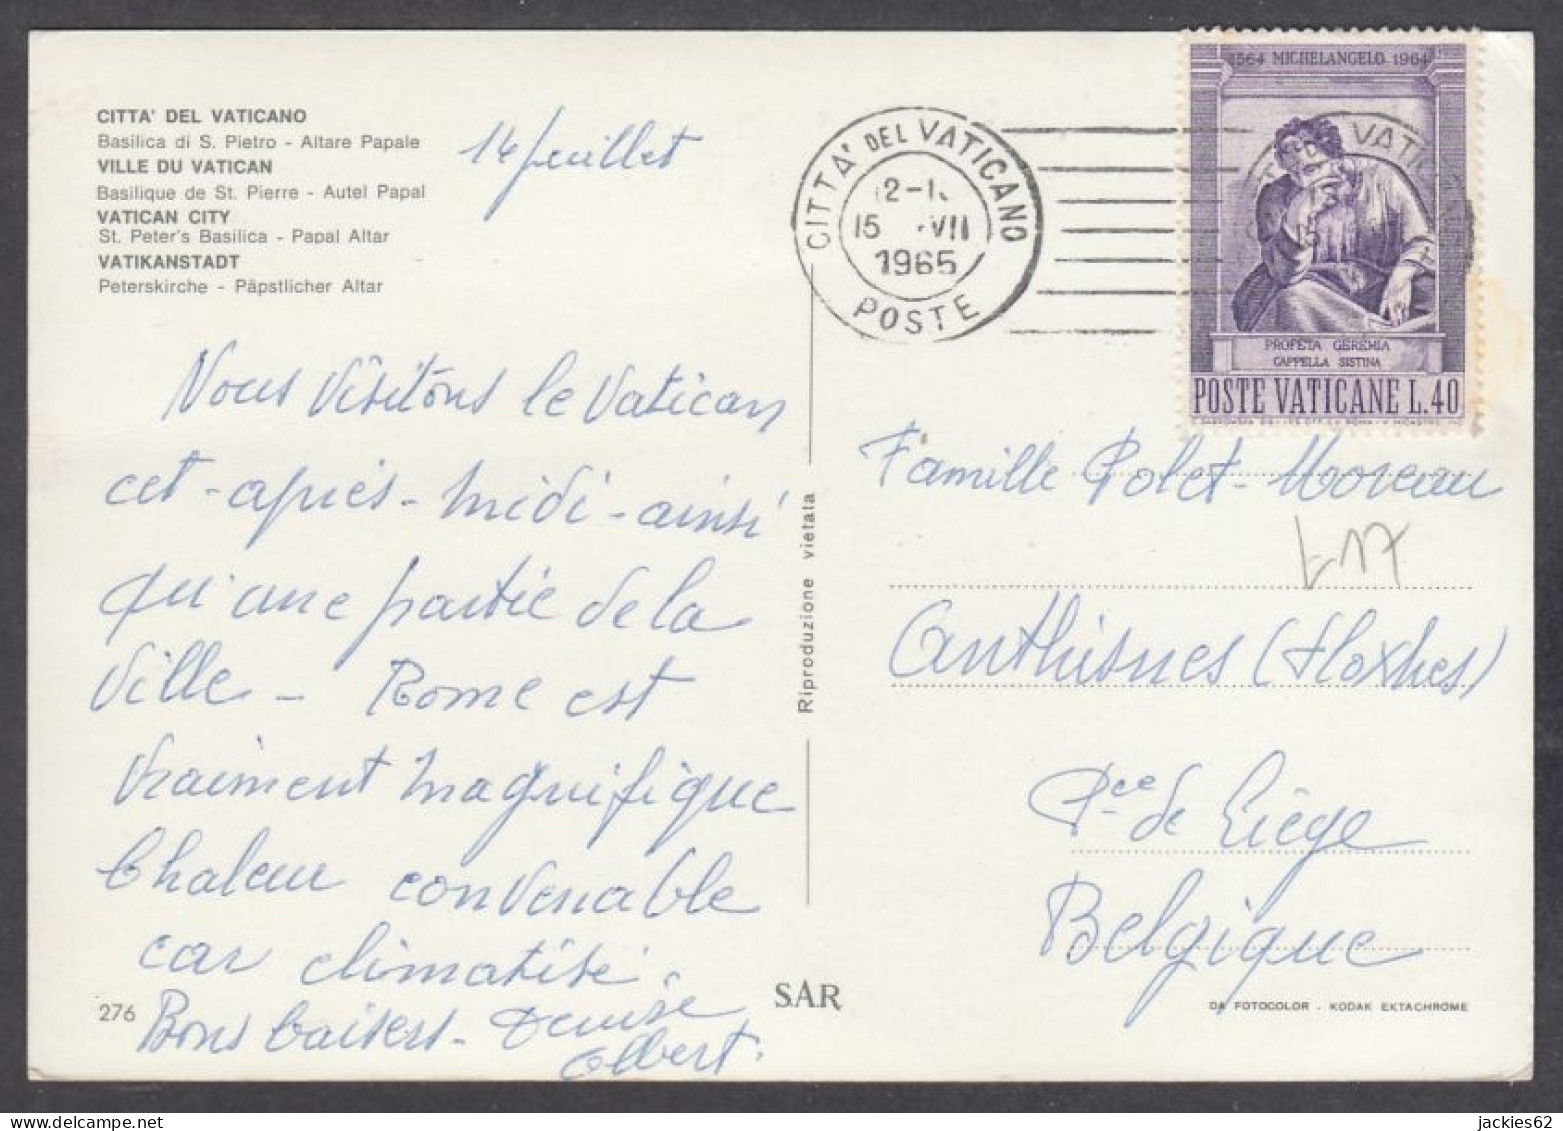 CITTA' DEL VATICANO
Basilica di S. Pietro - Altare Papale
VILLE DU VATICAN
Basilique de St. Pierre - Autel Papal
VATICAN CITY
St. Peter's Basilica - Papal Altar
VATIKANSTADT
Peterskirche - Päpstlicher Altar
14 juillet
Nous visitons le Vatican
cet-après-midi-ainsi
qu'une partie de la
ville - Rome est
vraiment magnifique
Chaleur convenable
car climatisé.
Bons baisers - Denise
Albert.
276
Riproduzione vietata
SAR
CITTA' DEL VATICANO
15 VII
1965
POSTE
1564 MICHELANGELO 1964
PROFETA GEREMIA
CAPPELLA SISTINA
POSTE VATICANE L.40
Famille Polet-Moreau
Anthisnes (Hoxhes)
Pce de Liège
Belgique
DA FOTOCOLOR - KODAK EKTACHROME
jackies62